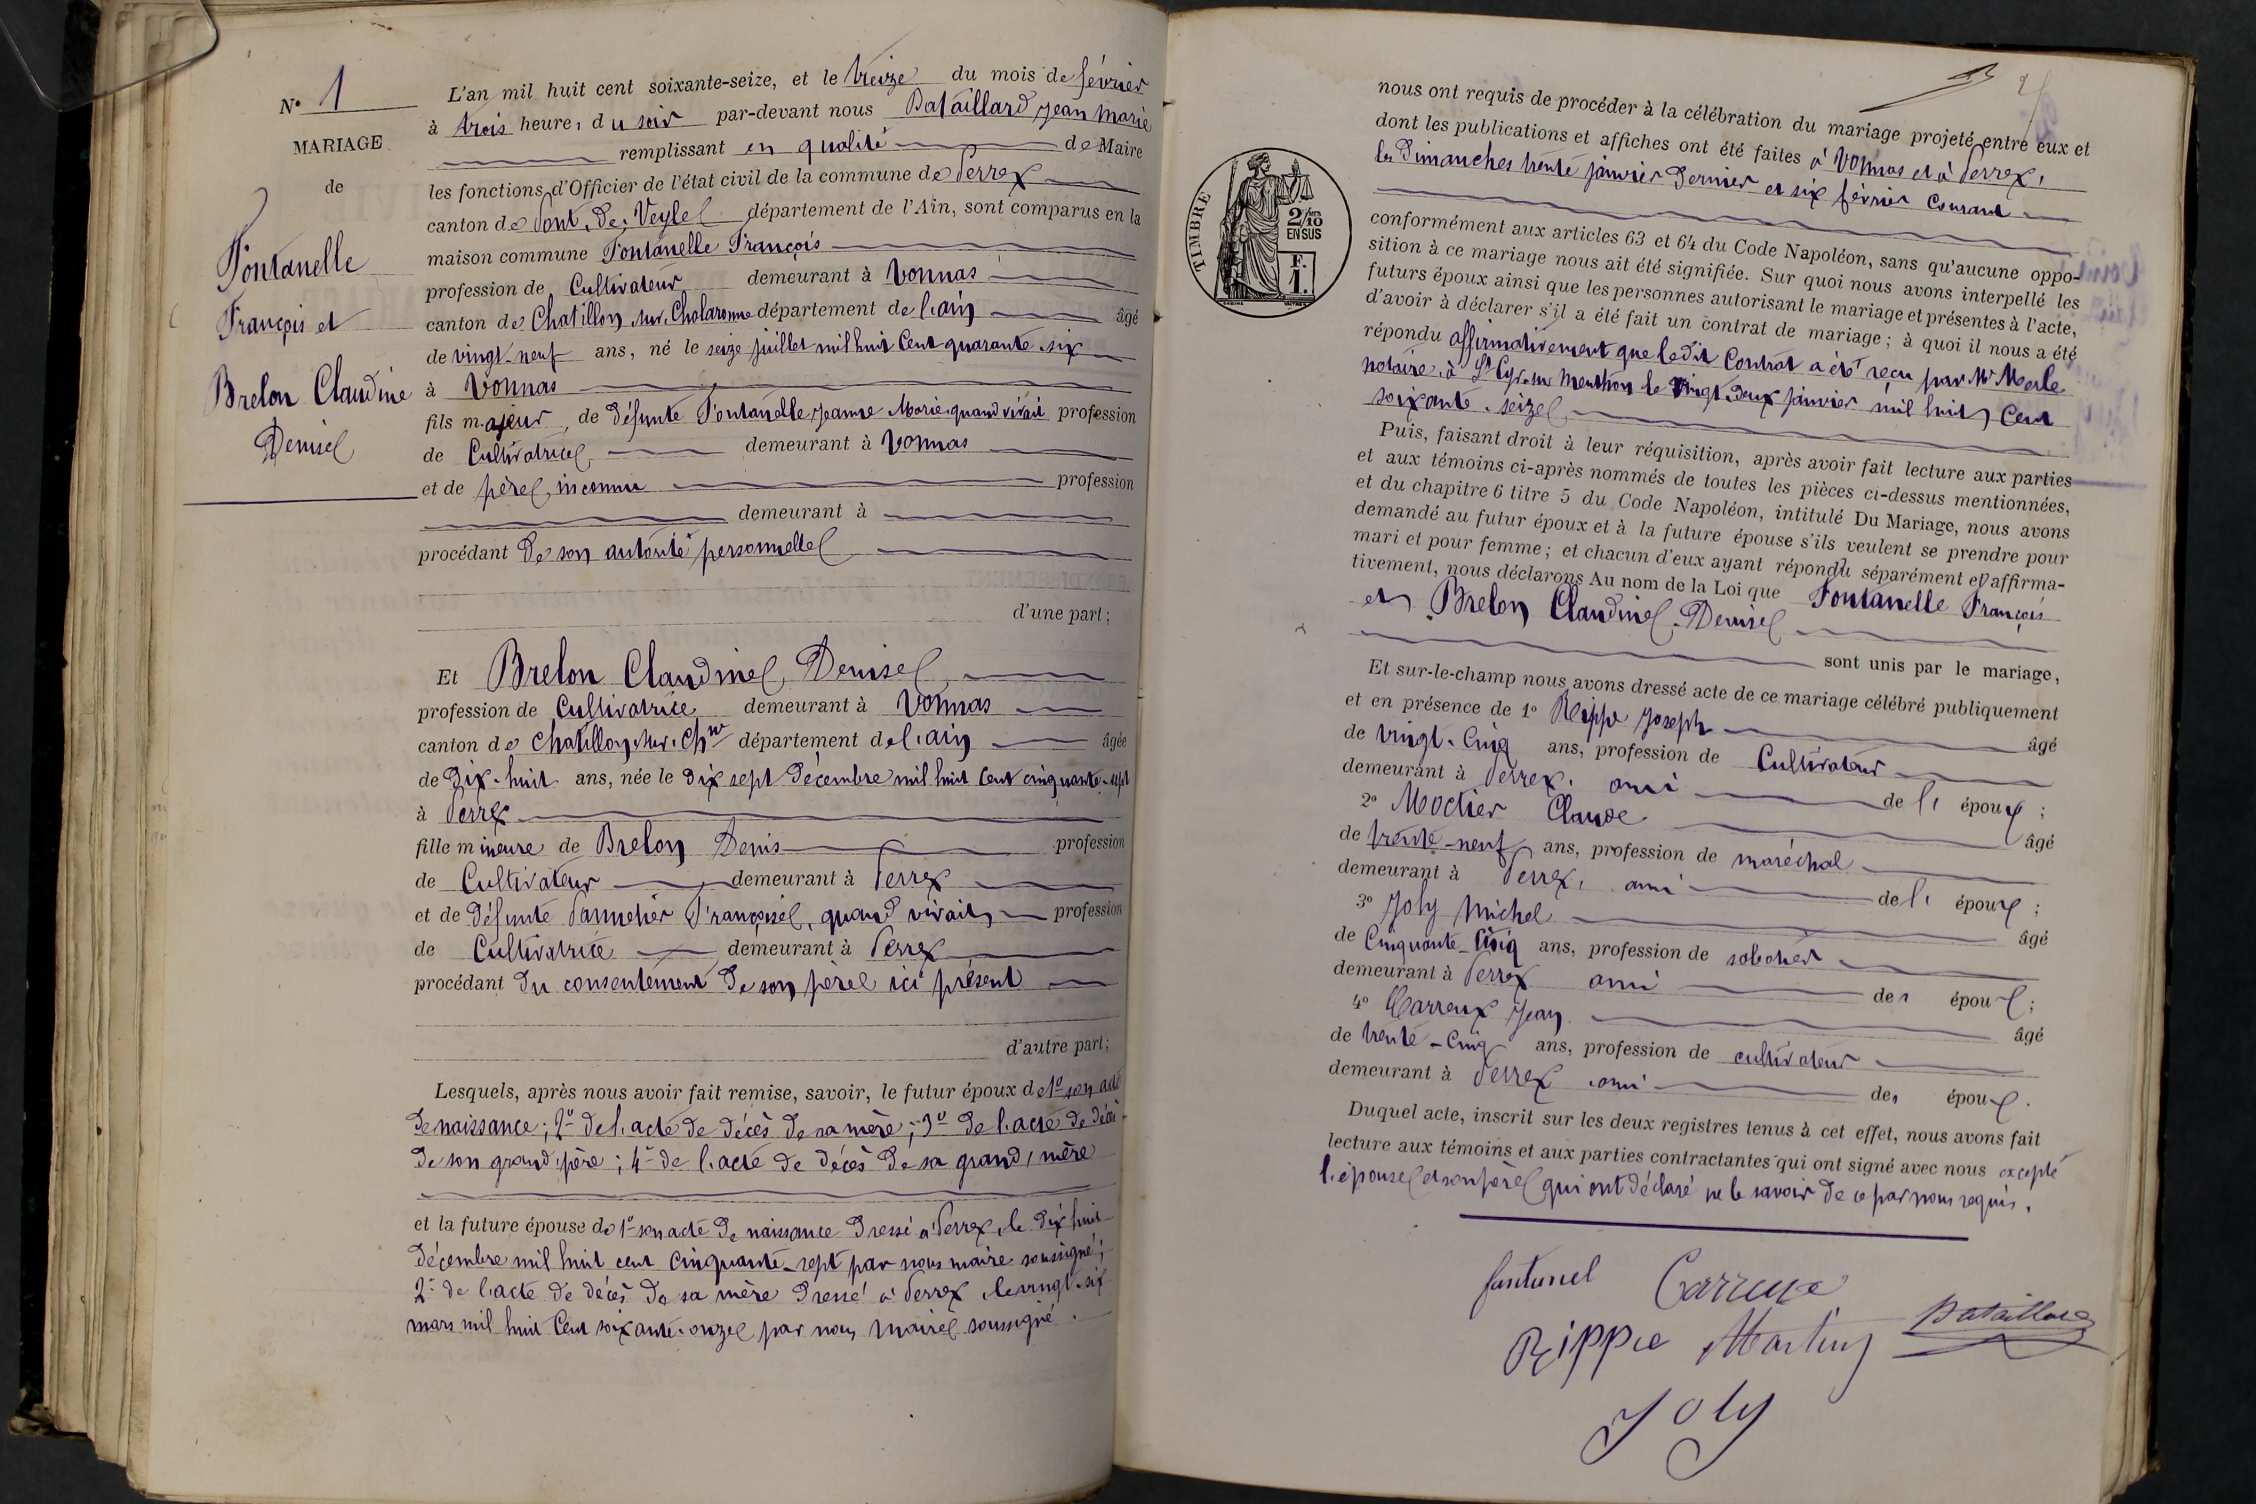 N° 1
MARIAGE
de
Fontanelle
François et
Brelon Claudine
Denise
L'an mil huit cent soixante-seize, et le treize du mois de février
à trois heures du soir par-devant nous Bataillard Jean Marie
remplissant en qualité de Maire
les fonctions d'Officier de l'état civil de la commune de Perrex
canton de Pont-de-Veyle département de l'Ain, sont comparus en la
maison commune Fontanelle François
profession de Cultivateur demeurant à Vonnas
canton de Chatillon sur Chalaronne département de l'ain âgé
de vingt-neuf ans, né le seize juillet mil huit cent quarante-six
à Vonnas
fils majeur de défunte Fontanelle Jeanne Marie quand vivait profession
de Cultivatrice demeurant à Vonnas
et de père inconnu profession
demeurant à
procédant de son autorité personnelle
d'une part;
Et Brelon Claudine Denise
profession de Cultivatrice demeurant à Vonnas
canton de Chatillon sur Chne département de l'ain âgée
de dix-huit ans, née le dix sept décembre mil huit cent cinquante-sept
à Perrex
fille mineure de Brelon Denis profession
de Cultivateur demeurant à Perrex
et de défunte Pannetier Françoise, quand vivait profession
de Cultivatrice demeurant à Perrex
procédant du consentement de son père ici présent
d'autre part;
Lesquels, après nous avoir fait remise, savoir, le futur époux de 1° son acte
de naissance; 2° de l'acte de décès de sa mère; 3° de l'acte de décès
de son grand-père; 4° de l'acte de décès de sa grand'mère
et la future épouse de 1° son acte de naissance dressé à Perrex, le dix huit
décembre mil huit cent cinquante-sept par nous maire soussigné;
2° de l'acte de décès de sa mère dressé à Perrex, le vingt-six
mars mil huit cent soixante-onze par nous maire soussigné.
nous ont requis de procéder à la célébration du mariage projeté entre eux et
dont les publications et affiches ont été faites à Vonnas et à Perrex,
les dimanches trente janvier dernier et six février courant
TIMBRE
2/10
EN SUS
F.
1.
conformément aux articles 63 et 64 du Code Napoléon, sans qu'aucune oppo-
sition à ce mariage nous ait été signifiée. Sur quoi nous avons interpellé les
futurs époux ainsi que les personnes autorisant le mariage et présentes à l'acte,
d'avoir à déclarer s'il a été fait un contrat de mariage; à quoi il nous a été
répondu affirmativement que ledit Contrat a été reçu par Mr Merle
notaire à St Cyr sur Menthon le vingt-deux janvier mil huit cent
soixante-seize
Puis, faisant droit à leur réquisition, après avoir fait lecture aux parties
et aux témoins ci-après nommés de toutes les pièces ci-dessus mentionnées,
et du chapitre 6 titre 5 du Code Napoléon, intitulé Du Mariage, nous avons
demandé au futur époux et à la future épouse s'ils veulent se prendre pour
mari et pour femme; et chacun d'eux ayant répondu séparément et affirma-
tivement, nous déclarons Au nom de la Loi que Fontanelle François
et Brelon Claudine Denise
sont unis par le mariage,
Et sur-le-champ nous avons dressé acte de ce mariage célébré publiquement
et en présence de 1° Rippe Joseph âgé
de vingt-cinq ans, profession de Cultivateur
demeurant à Perrex, ami de l' époux;
2° Claude âgé
de trente-neuf ans, profession de maréchal
demeurant à Perrex, ami de l' époux;
3° Joly Michel âgé
de Cinquante-cinq ans, profession de sabotier
demeurant à Perrex ami de l' épou ;
4° Carreux Jean âgé
de trente-cinq ans, profession de cultivateur
demeurant à Perrex ami de l' épou .
Duquel acte, inscrit sur les deux registres tenus à cet effet, nous avons fait
lecture aux témoins et aux parties contractantes qui ont signé avec nous excepté
l'épouse et son père qui ont déclaré ne le savoir de ce par nous requis.
fontanel Carreux
Rippe Bataillard
Joly